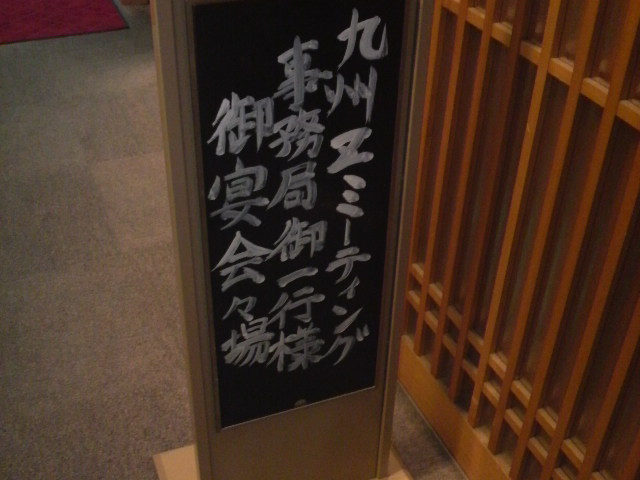 九州ヱミーティング
事務局御一行様
御宴会々場